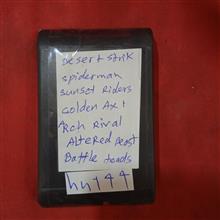 Desert strik
spiderman
sunset Riders
Golden Ax 1
Arch Rival
AlteRed Beast
Battle toads